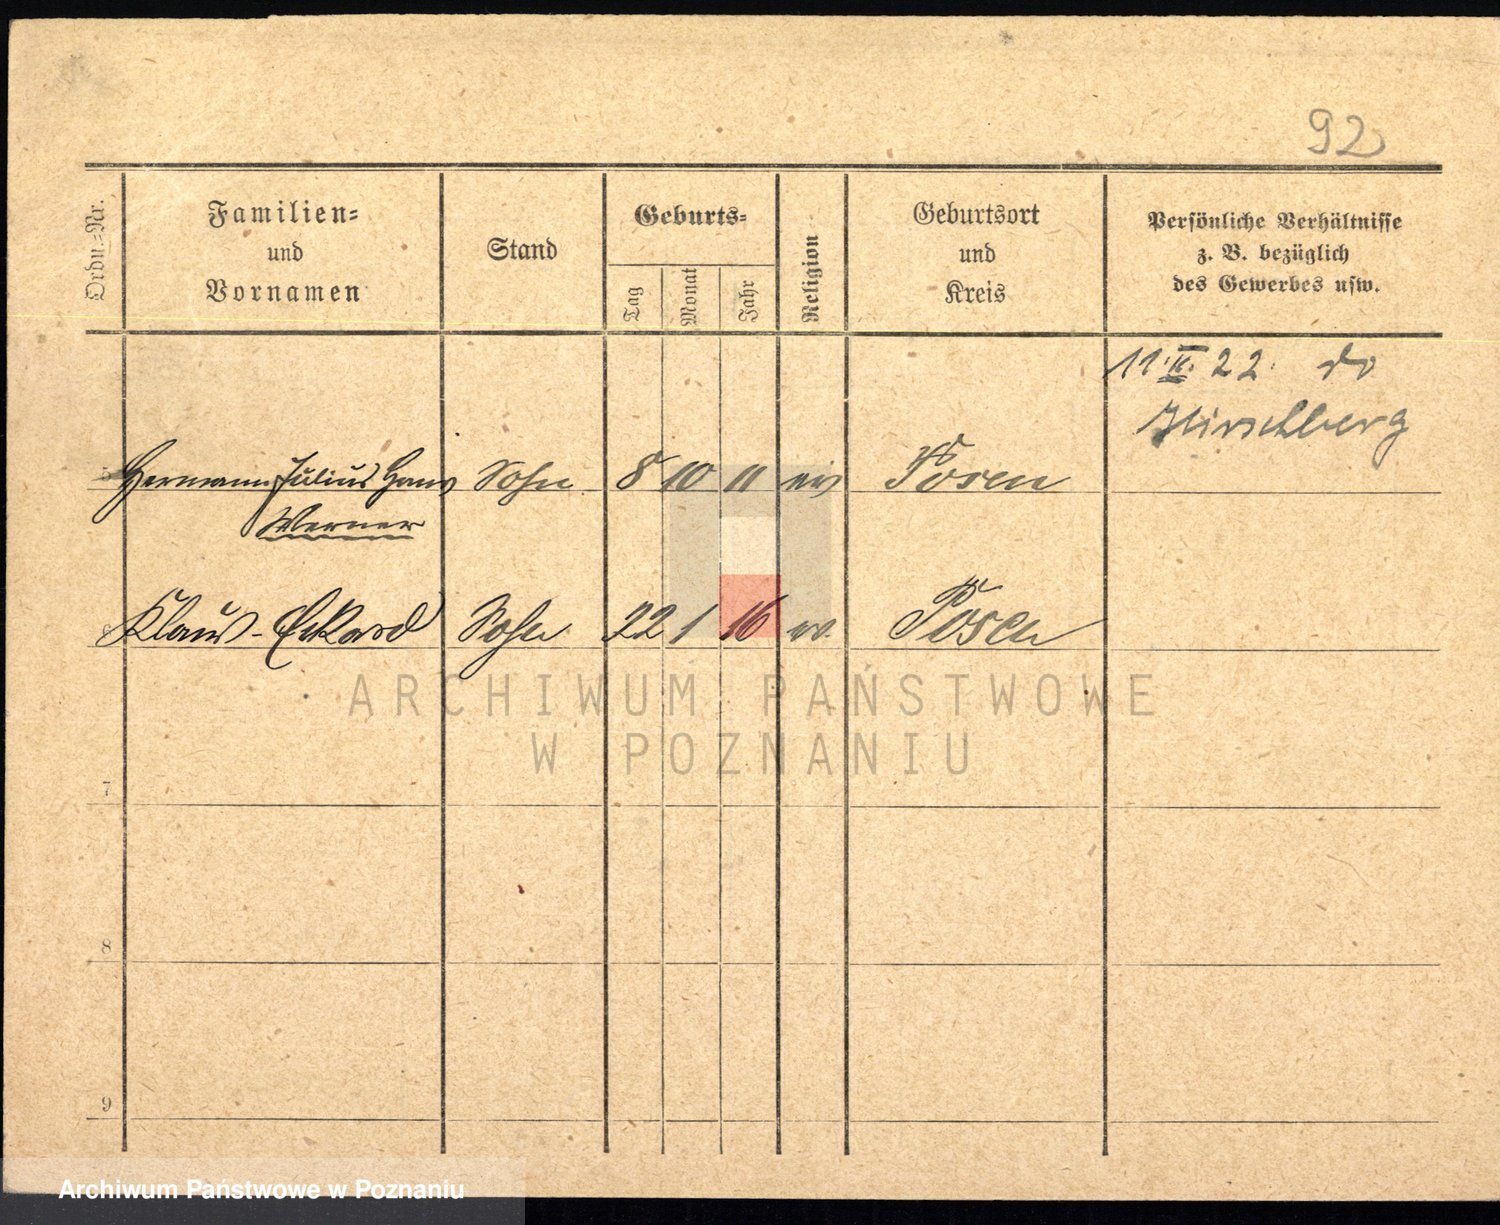 92
Ordn.-Nr.
Familien-
und
Vornamen
Stand
Geburts-
Tag
Monat
Jahr
Religion
Geburtsort
und
Kreis
Persönliche Verhältnisse
z. B. bezüglich
des Gewerbes usw.
11. II. 22. do
Hirschberg
5 Hermann Julius Hans Sohn 8 10 11 ev Posen
Werner
6 Klaus-Eckard Sohn 22 1 16 ev. Posen
ARCHIWUM PAŃSTWOWE
W POZNANIU
7
8
9
Archiwum Państwowe w Poznaniu